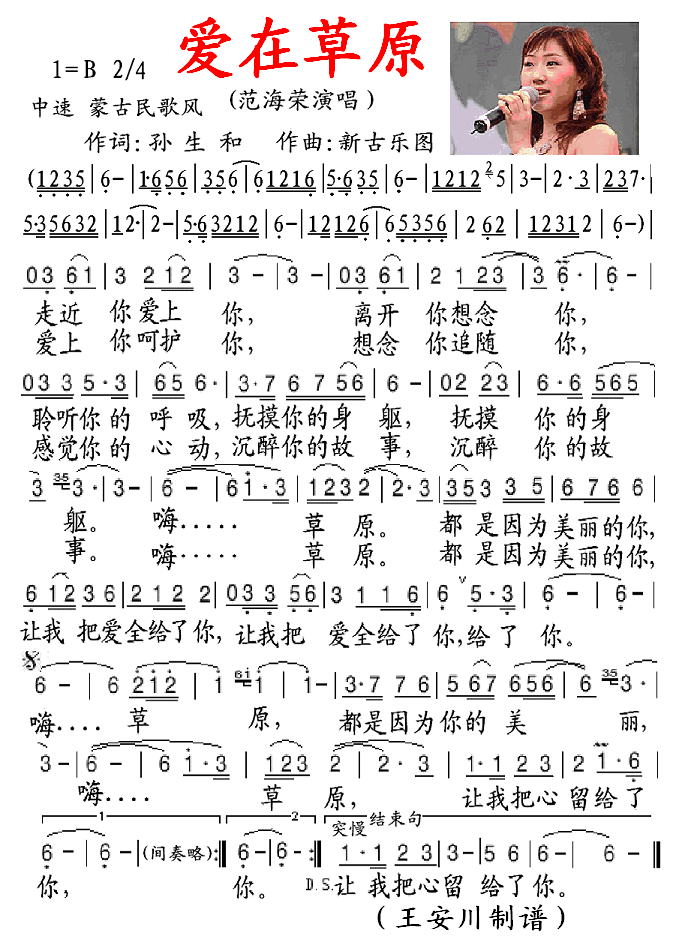 爱在草原
1=B 2/4
中速 蒙古民歌风 (范海荣演唱)
作词:孙生和 作曲:新古乐图
(1235|6-|1·656|356|61216|5·635|6-|1212 25|3-|2·3|237·|
5·35632|12·|2-|5·63212|6-|12126|65356|2 62|12312|6-)|
03 61|3 212|3-|3-|03 61|2 123|36·|6-|
走近 你爱上 你, 离开 你想念 你,
爱上 你呵护 你, 想念 你追随 你,
033 5·3|65 6·|3·7 6 7 56|6-|02 23|6·6 565|
聆听你的 呼 吸,抚摸你的身 躯, 抚摸 你的身
感觉你的 心 动,沉醉你的故 事, 沉醉 你的故
3 353·|3-|6-|61·3|1235|2·3|353 35|6766|
躯。 嗨..... 草 原。 都是因为美丽的你,
事。 嗨..... 草 原。 都是因为美丽的你,
6 1236|212 2|033 56|3 1 16|6 ∨5·3|6-|6-|
让我 把爱全给了你,让我把 爱全给了你,给了 你。
6-|6 212|1 61 1|1-|3·7 76|5 67 656|6 353·|
嗨.... 草 原, 都是因为你的 美 丽,
3-|6-|6 1·3|123|2·3|1·1 23|2 1·6|
嗨.... 草 原, 让我把心留给了
1 2 突慢 结束句
6-|6-(间奏略):‖6-|6-:‖1·1 23|3-|5·6|6-|6-‖
你, 你。 D.S.让我把心留 给了你。
(王安川制谱)